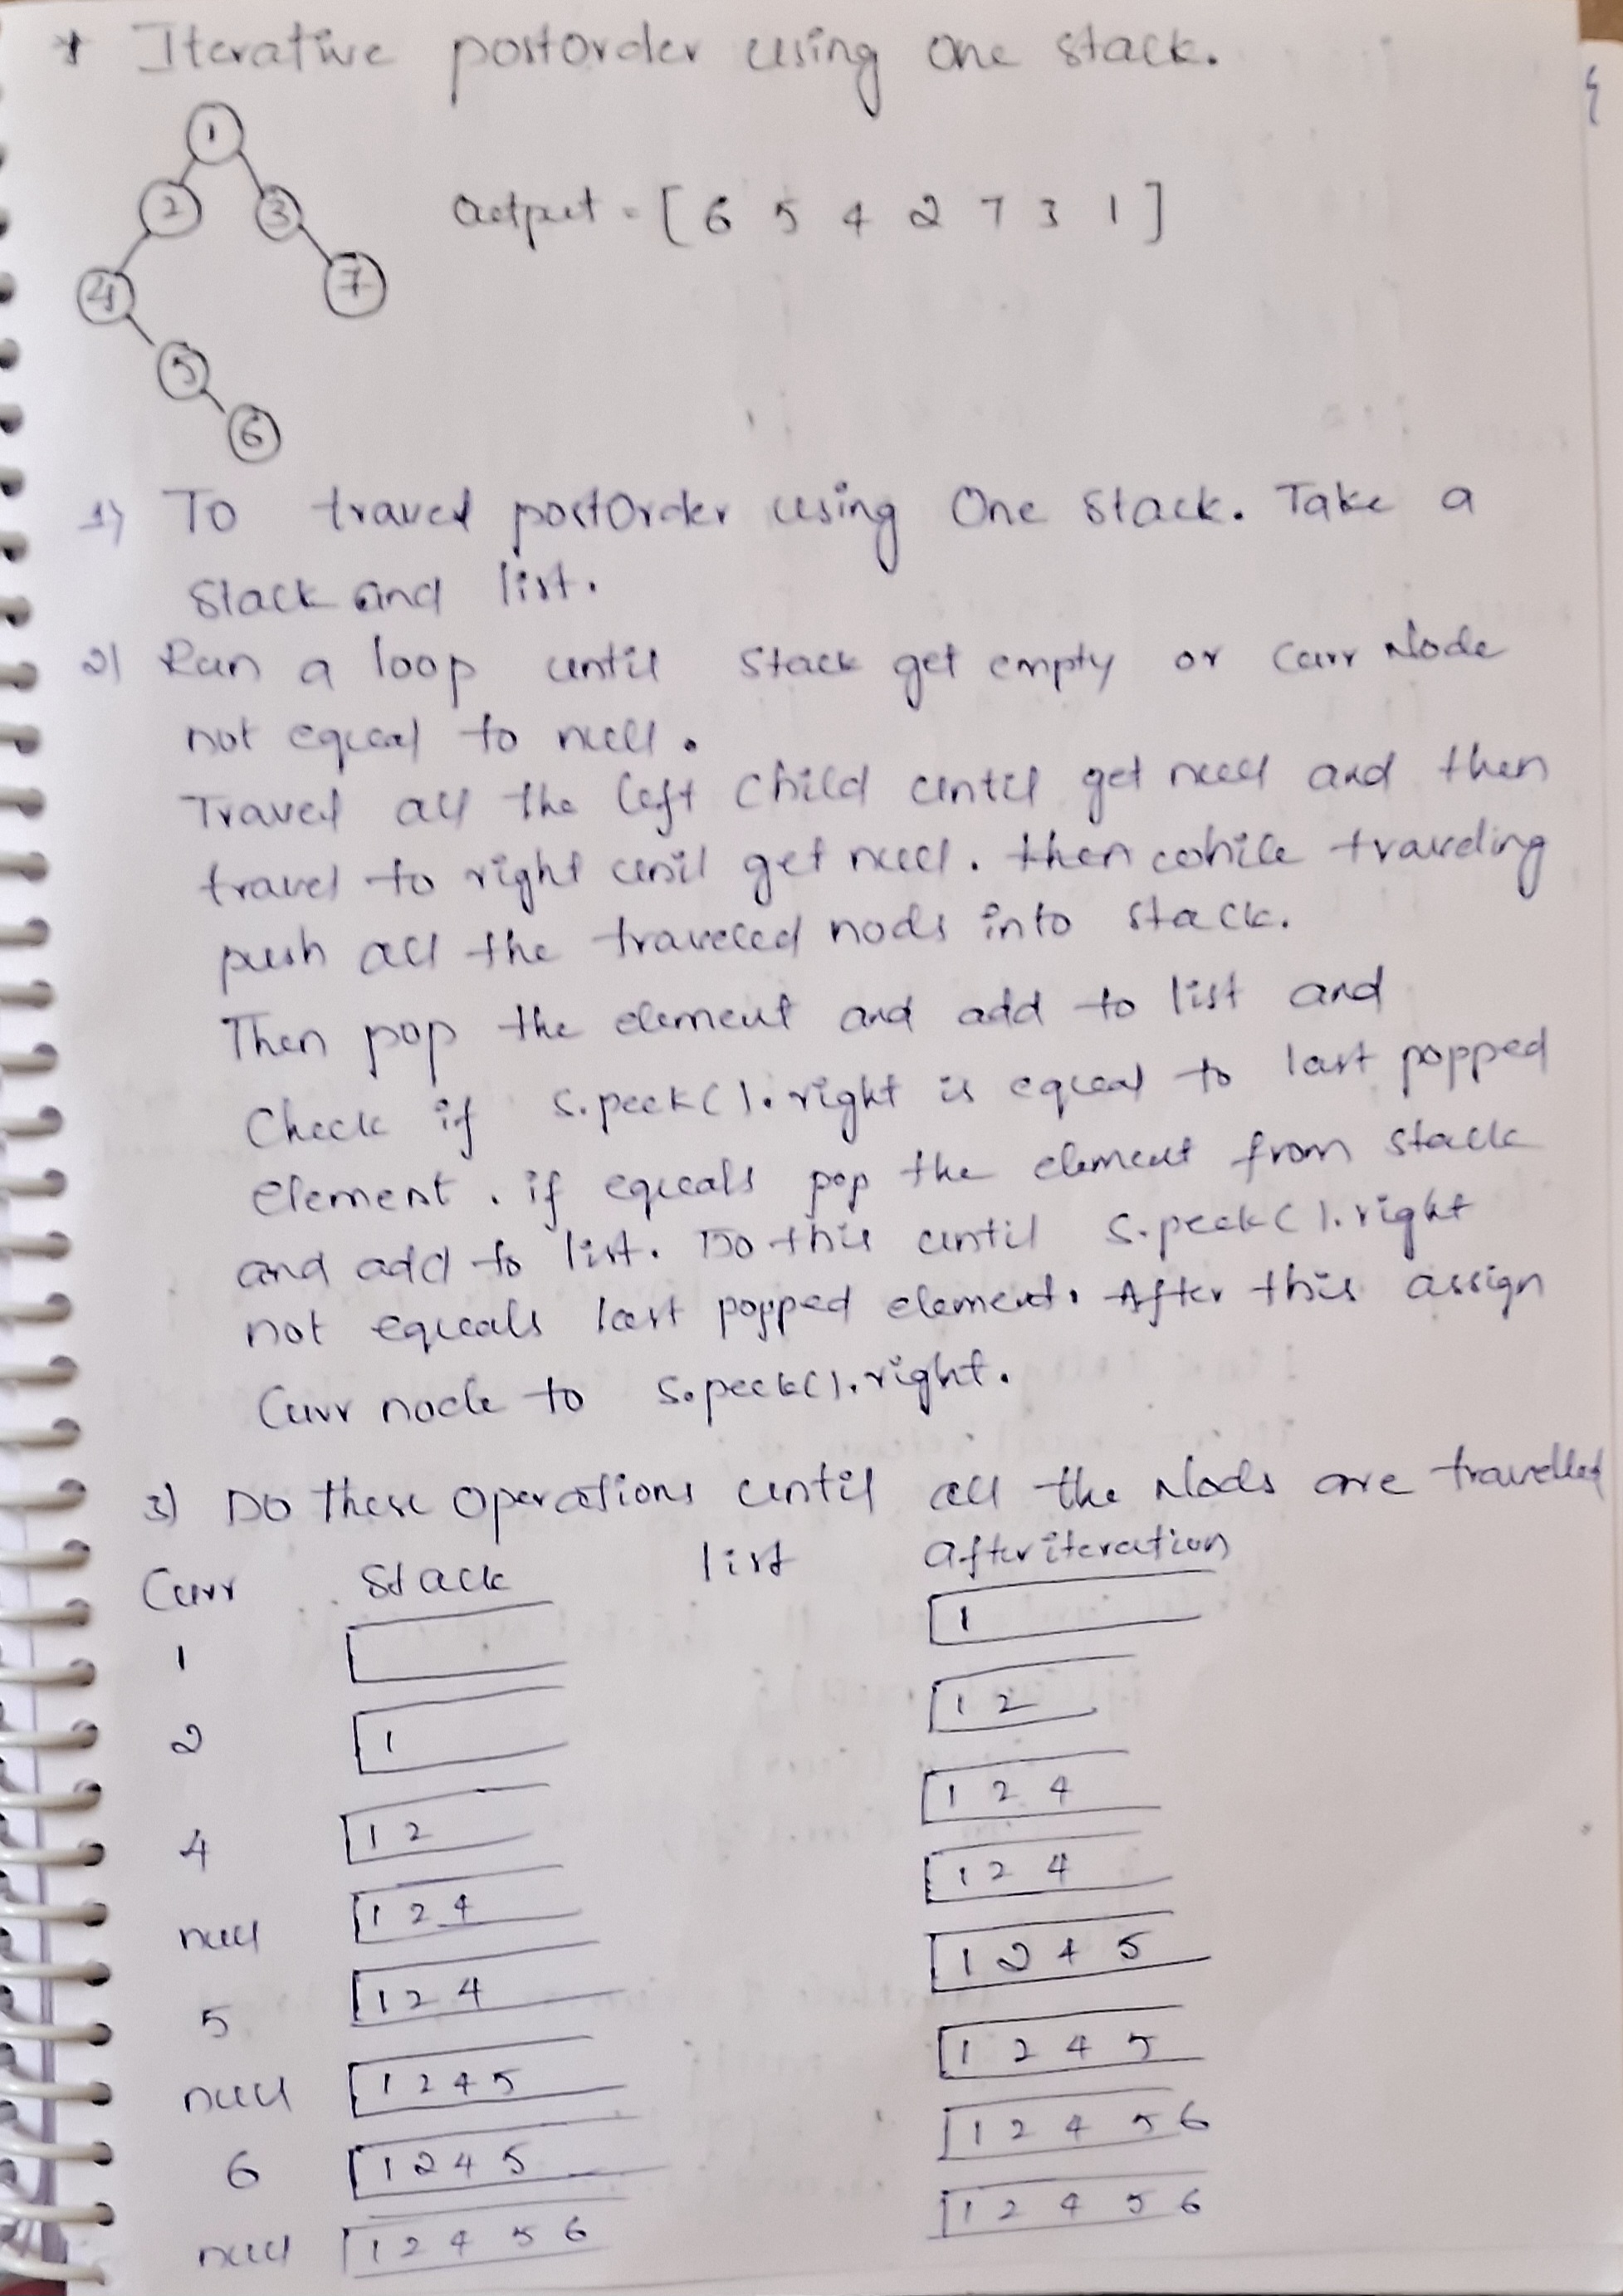 * Iterative postOrder using one stack.
1
2 3
Output = [ 6 5 4 2 7 3 1 ]
4 7
5
6
1) To travel postOrder using One Stack. Take a
Stack and list.
2) Run a loop until Stack get empty or Curr Node
not equal to null.
Travel all the left child until get null and then
travel to right unil get null. then while traveling
push all the traveled nods into stack.
Then pop the element and add to list and
Check if s.peek().right is equal to last popped
Element. if equals pop the element from stack
and add to list. Do this until s.peek().right
not equals last popped element. After this assign
Curr node to s.peek().right.
3) Do these Operations until all the Nods are travelled
Curr Stack list after iteration
1 1
2 1 1 2
4 1 2 1 2 4
null 1 2 4 1 2 4
5 1 2 4 1 2 4 5
null 1 2 4 5 1 2 4 5
6 1 2 4 5 1 2 4 5 6
null 1 2 4 5 6 1 2 4 5 6